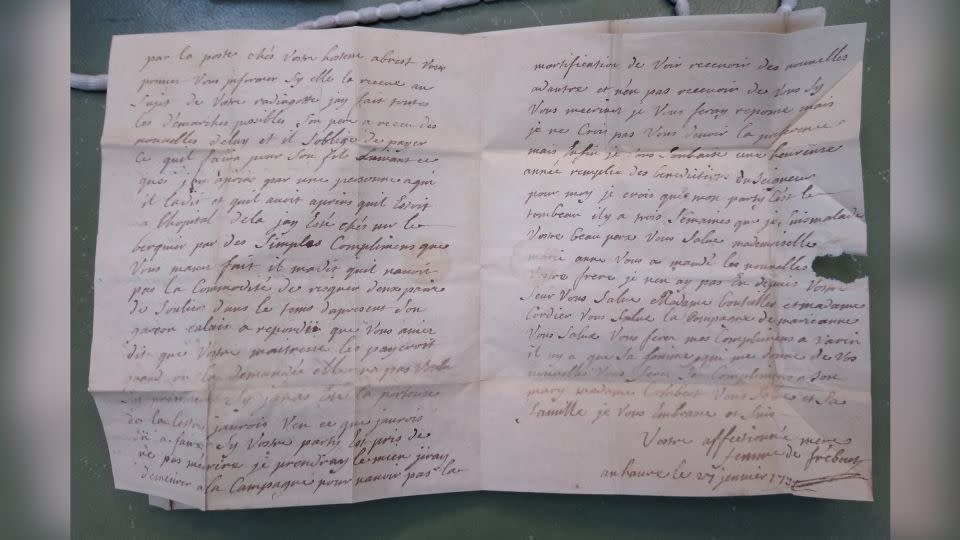 par la poste chés Votre hotesse abrest Vous
pouvez Vous informer Sy elle la receue au
Sujet de Votre radingotte jay fait toutes
les démarches posibles Son pere a receu des
nouvelles deluy et il Soblige de payer
Ce quil faura pour Son fils Suivant ce
que j'en apris par une personne aqui
il ladit et quil avoit apris quil Estoit
a l'hopital dela jay Esté chés mr le
berquier par des Simples Complimens que
Vous mavez fait il madit quil navoit
pas la Commodité de risquer deux paire
de Souliers dans le tems dapresent Son
garcon calais a repondü que Vous aviez
dit que Vostre maitresse les payeroit
quand on la demandée elle na pas Voulu
Sy javois Esté la porteuse
de la lettre jaurois Veu ce que jaurois
dü a faire Sy Vostre partis Est pris de
ne pas mecrire je prendray le mien jiray
demeurer a la Campagne pour navoir pas la
mortification de Voir recevoir des nouvelles
adautre et nen pas recevoir de Vous Sy
Vous mecrivez je Vous feray reponse mais
je ne Croit pas Vous devoir la preference
mais Enfin je Vous Souhaite une heureuse
année remplie des benedictions du Seigneur
pour moy je crois que mon party Est le
tombeau il y a trois Semaines que je Suis malade
Vostre beau pere Vous Salue mademoiselle
marie anne Vous a mandé les nouvelles
Vostre frere je nen ay pas Eu depuis Votre
Seur Vous Salue Madame et madame
Cordier Vous Salue la Compagne de marieanne
Vous Salue Vous ferez mes Complimens a Varin
il ny a que Sa femme qui me donne de Vos
nouvelles Vous ferez Complimens a Son
mary madame Vous Salue et Sa
famille je Vous Embrasse et Suis
Vostre affectionné mere
femme de frébourg
au havre le 27 janvier 17